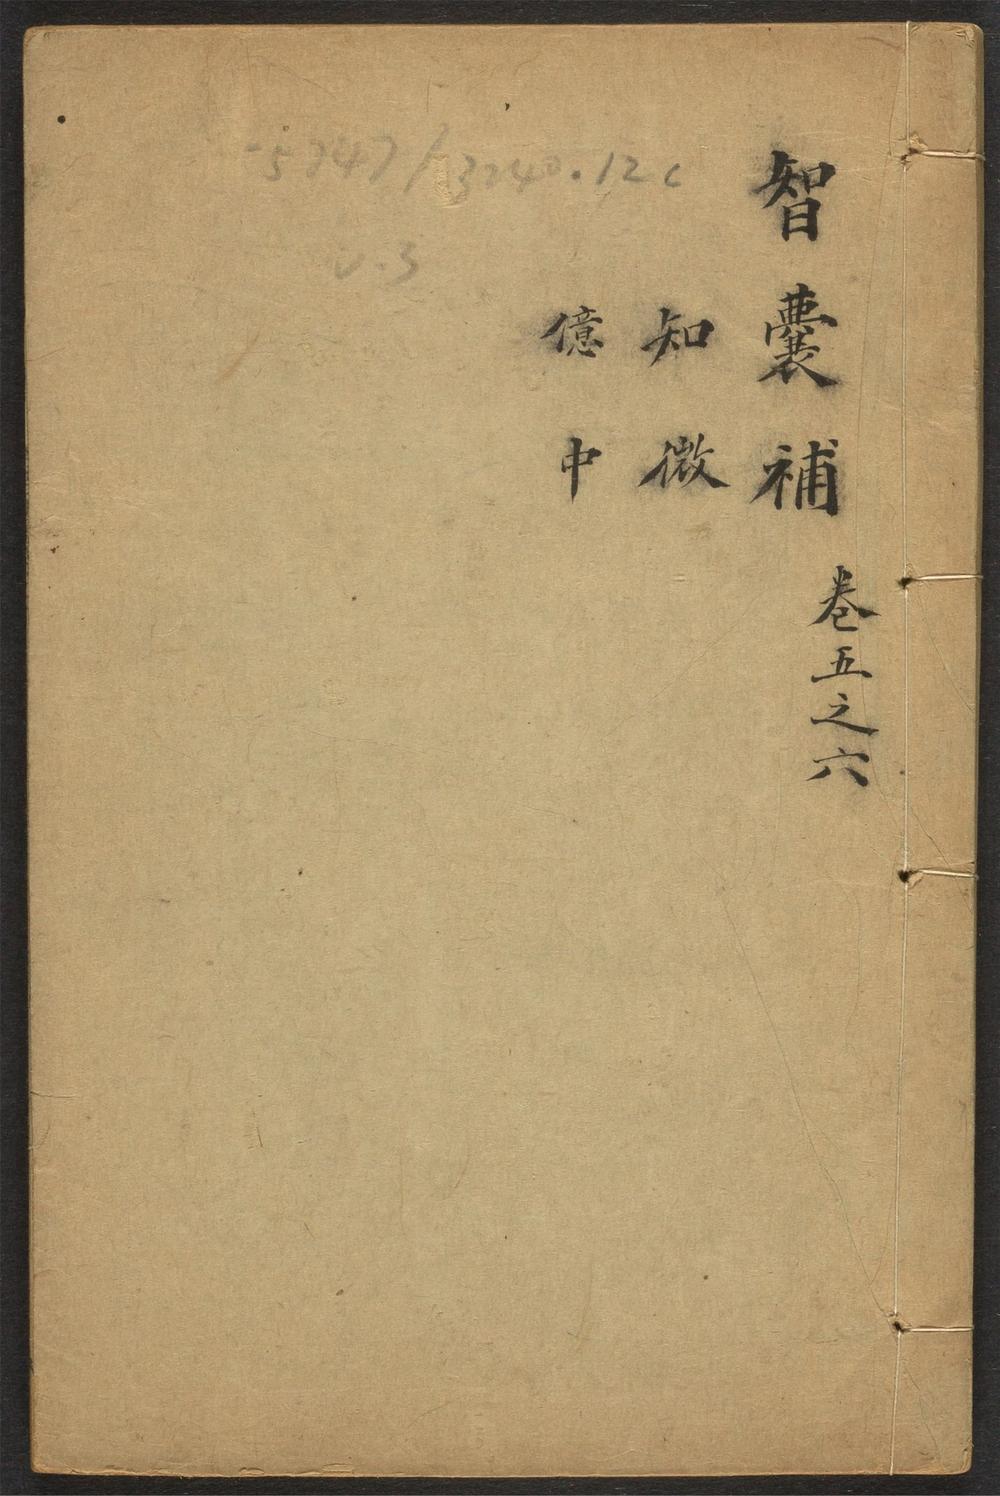 智囊補
卷五之六
知微
億中
5747/3240.12c
v.3